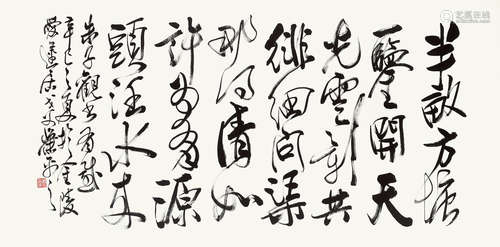 半畝方塘
一鑒開天
光雲影共
徘徊問渠
那得清如
許為有源
頭活水来
朱子觀書有感
辛巳之夏於金陵
艺狐在线